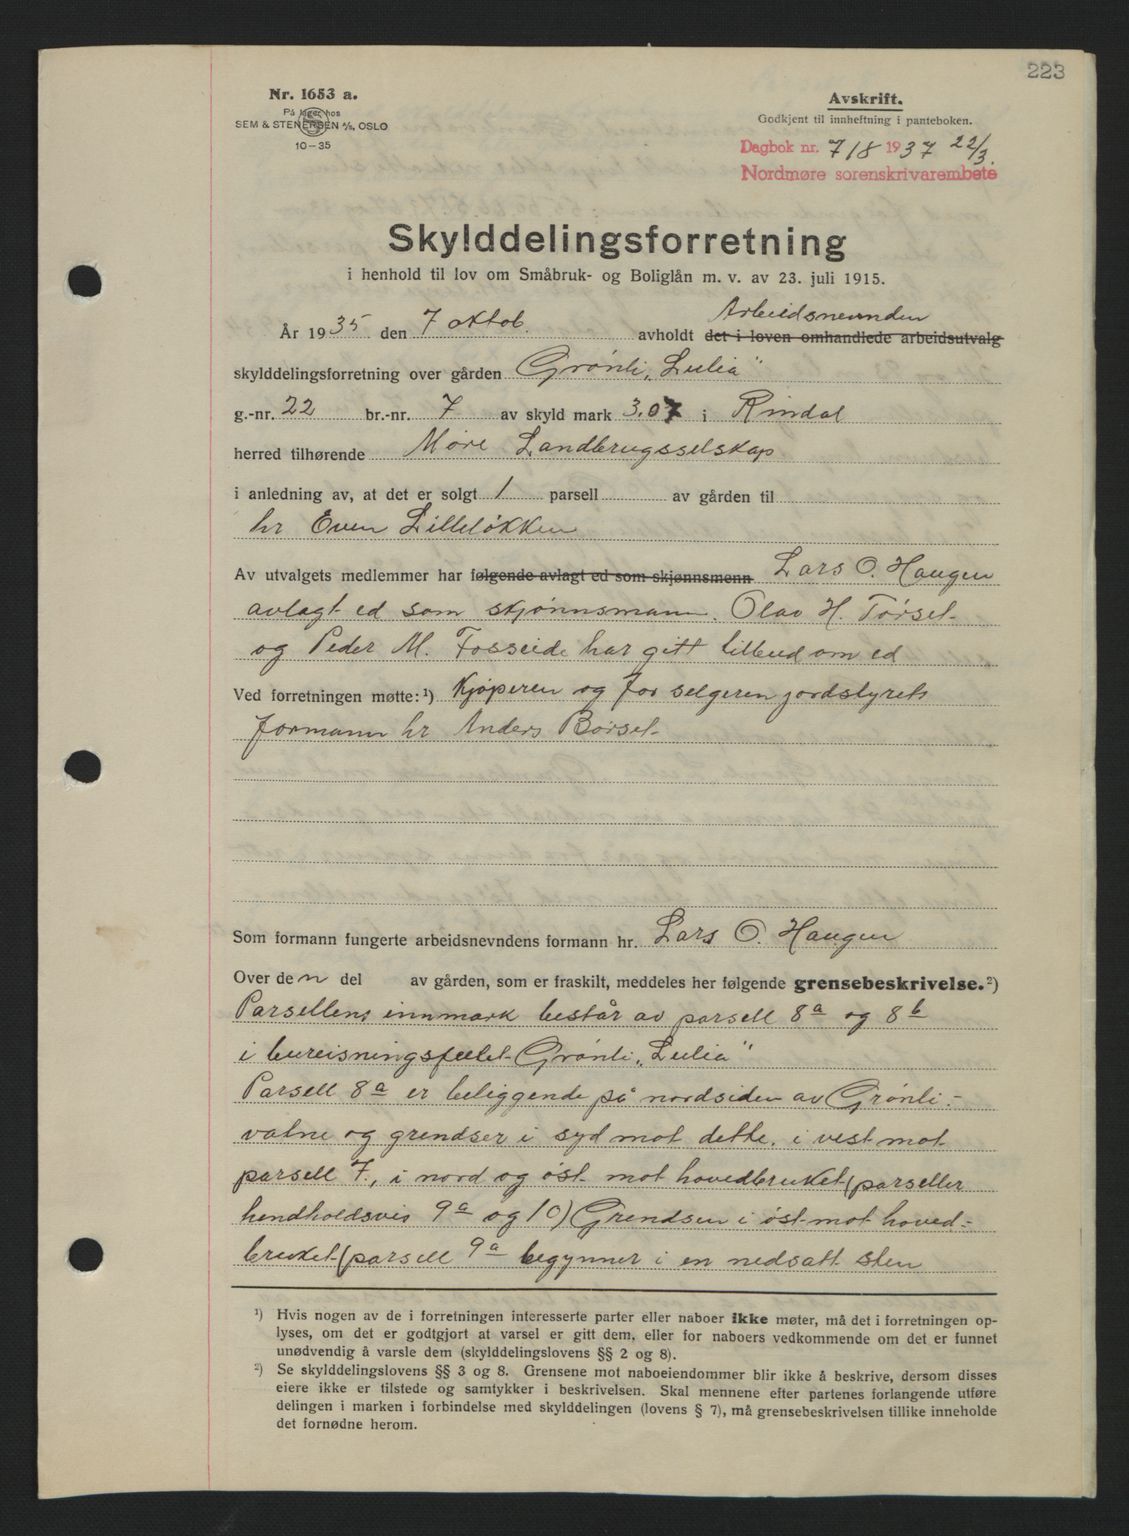 223
Nr. 1653 a.
På lager hos
SEM & STENERSEN A/S, OSLO
10-35
Avskrift.
Godkjent til innheftning i panteboken.
Dagbok nr. 718 1937 22/3.
Nordmøre sorenskrivarembete
Skylddelingsforretning
i henhold til lov om Småbruk- og Boliglån m. v. av 23. juli 1915.
Arbeidsnevnden
År 1935 den 7 oktob. avholdt det i loven omhandlede arbeidsutvalg
skylddelingsforretning over gården Grønli „Lulia"
g.-nr. 22 br.-nr. 7 av skyld mark 3.07 i Rindal
herred tilhørende Møre Landbrugsselskap
i anledning av, at det er solgt 1 parsell av gården til
hr Even Lilleløkken
Av utvalgets medlemmer har følgende avlagt ed som skjønnsmenn Lars O. Haugen
avlagt ed som skjønnsmann. Olav H. Tørset
og Peder M. Fosseide har gitt tilbud om ed
Ved forretningen møtte: ¹) Kjøperen og for selgeren jordstyrets
formann hr Anders Børset
Som formann fungerte arbeidsnevndens formann hr. Lars O. Haugen
Over den del av gården, som er fraskilt, meddeles her følgende grensebeskrivelse.²)
Parsellens innmark består av parsell 8a og 8b
i bureisningsfeltet Grønli „Lulia"
Parsell 8a er beliggende på nordsiden av Grønli-
vatne og grendser i syd mot dette, i vest mot
parsell 7, i nord og øst mot hovedbruket (parseller
hendholdsvis 9a og 10) Grendsen i øst mot hoved-
bruket (parsell 9a begynner i en nedsatt sten
¹) Hvis nogen av de i forretningen interesserte parter eller naboer ikke møter, må det i forretningen op-
lyses, om det er godtgjort at varsel er gitt dem, eller for naboers vedkommende om det er funnet
unødvendig å varsle dem (skylddelingslovens §§ 2 og 8).
²) Se skylddelingslovens §§ 3 og 8. Grensene mot naboeiendommer blir ikke å beskrive, dersom disses
eiere ikke er tilstede og samtykker i beskrivelsen. Skal mennene efter partenes forlangende utføre
delingen i marken i forbindelse med skylddelingen (lovens § 7), må grensebeskrivelsen tillike inneholde
det fornødne herom.